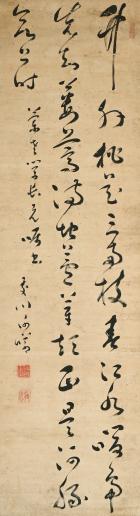 竹外桃花三兩枝春江水暖鴨
先知蔞蒿滿地蘆芽短正是河豚
欲上時
學長兄囑書